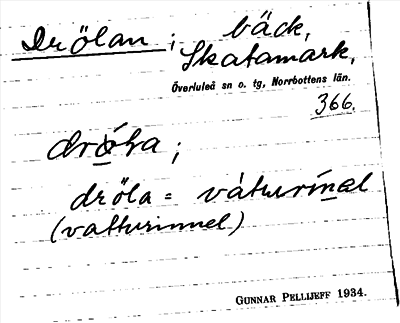 Drölan; bäck,
Skatamark,
Överluleå sn o. tg, Norrbottens län.
366.
;
dröla = váturínel
(vatturinnel)
GUNNAR PELLIJEFF 1934.